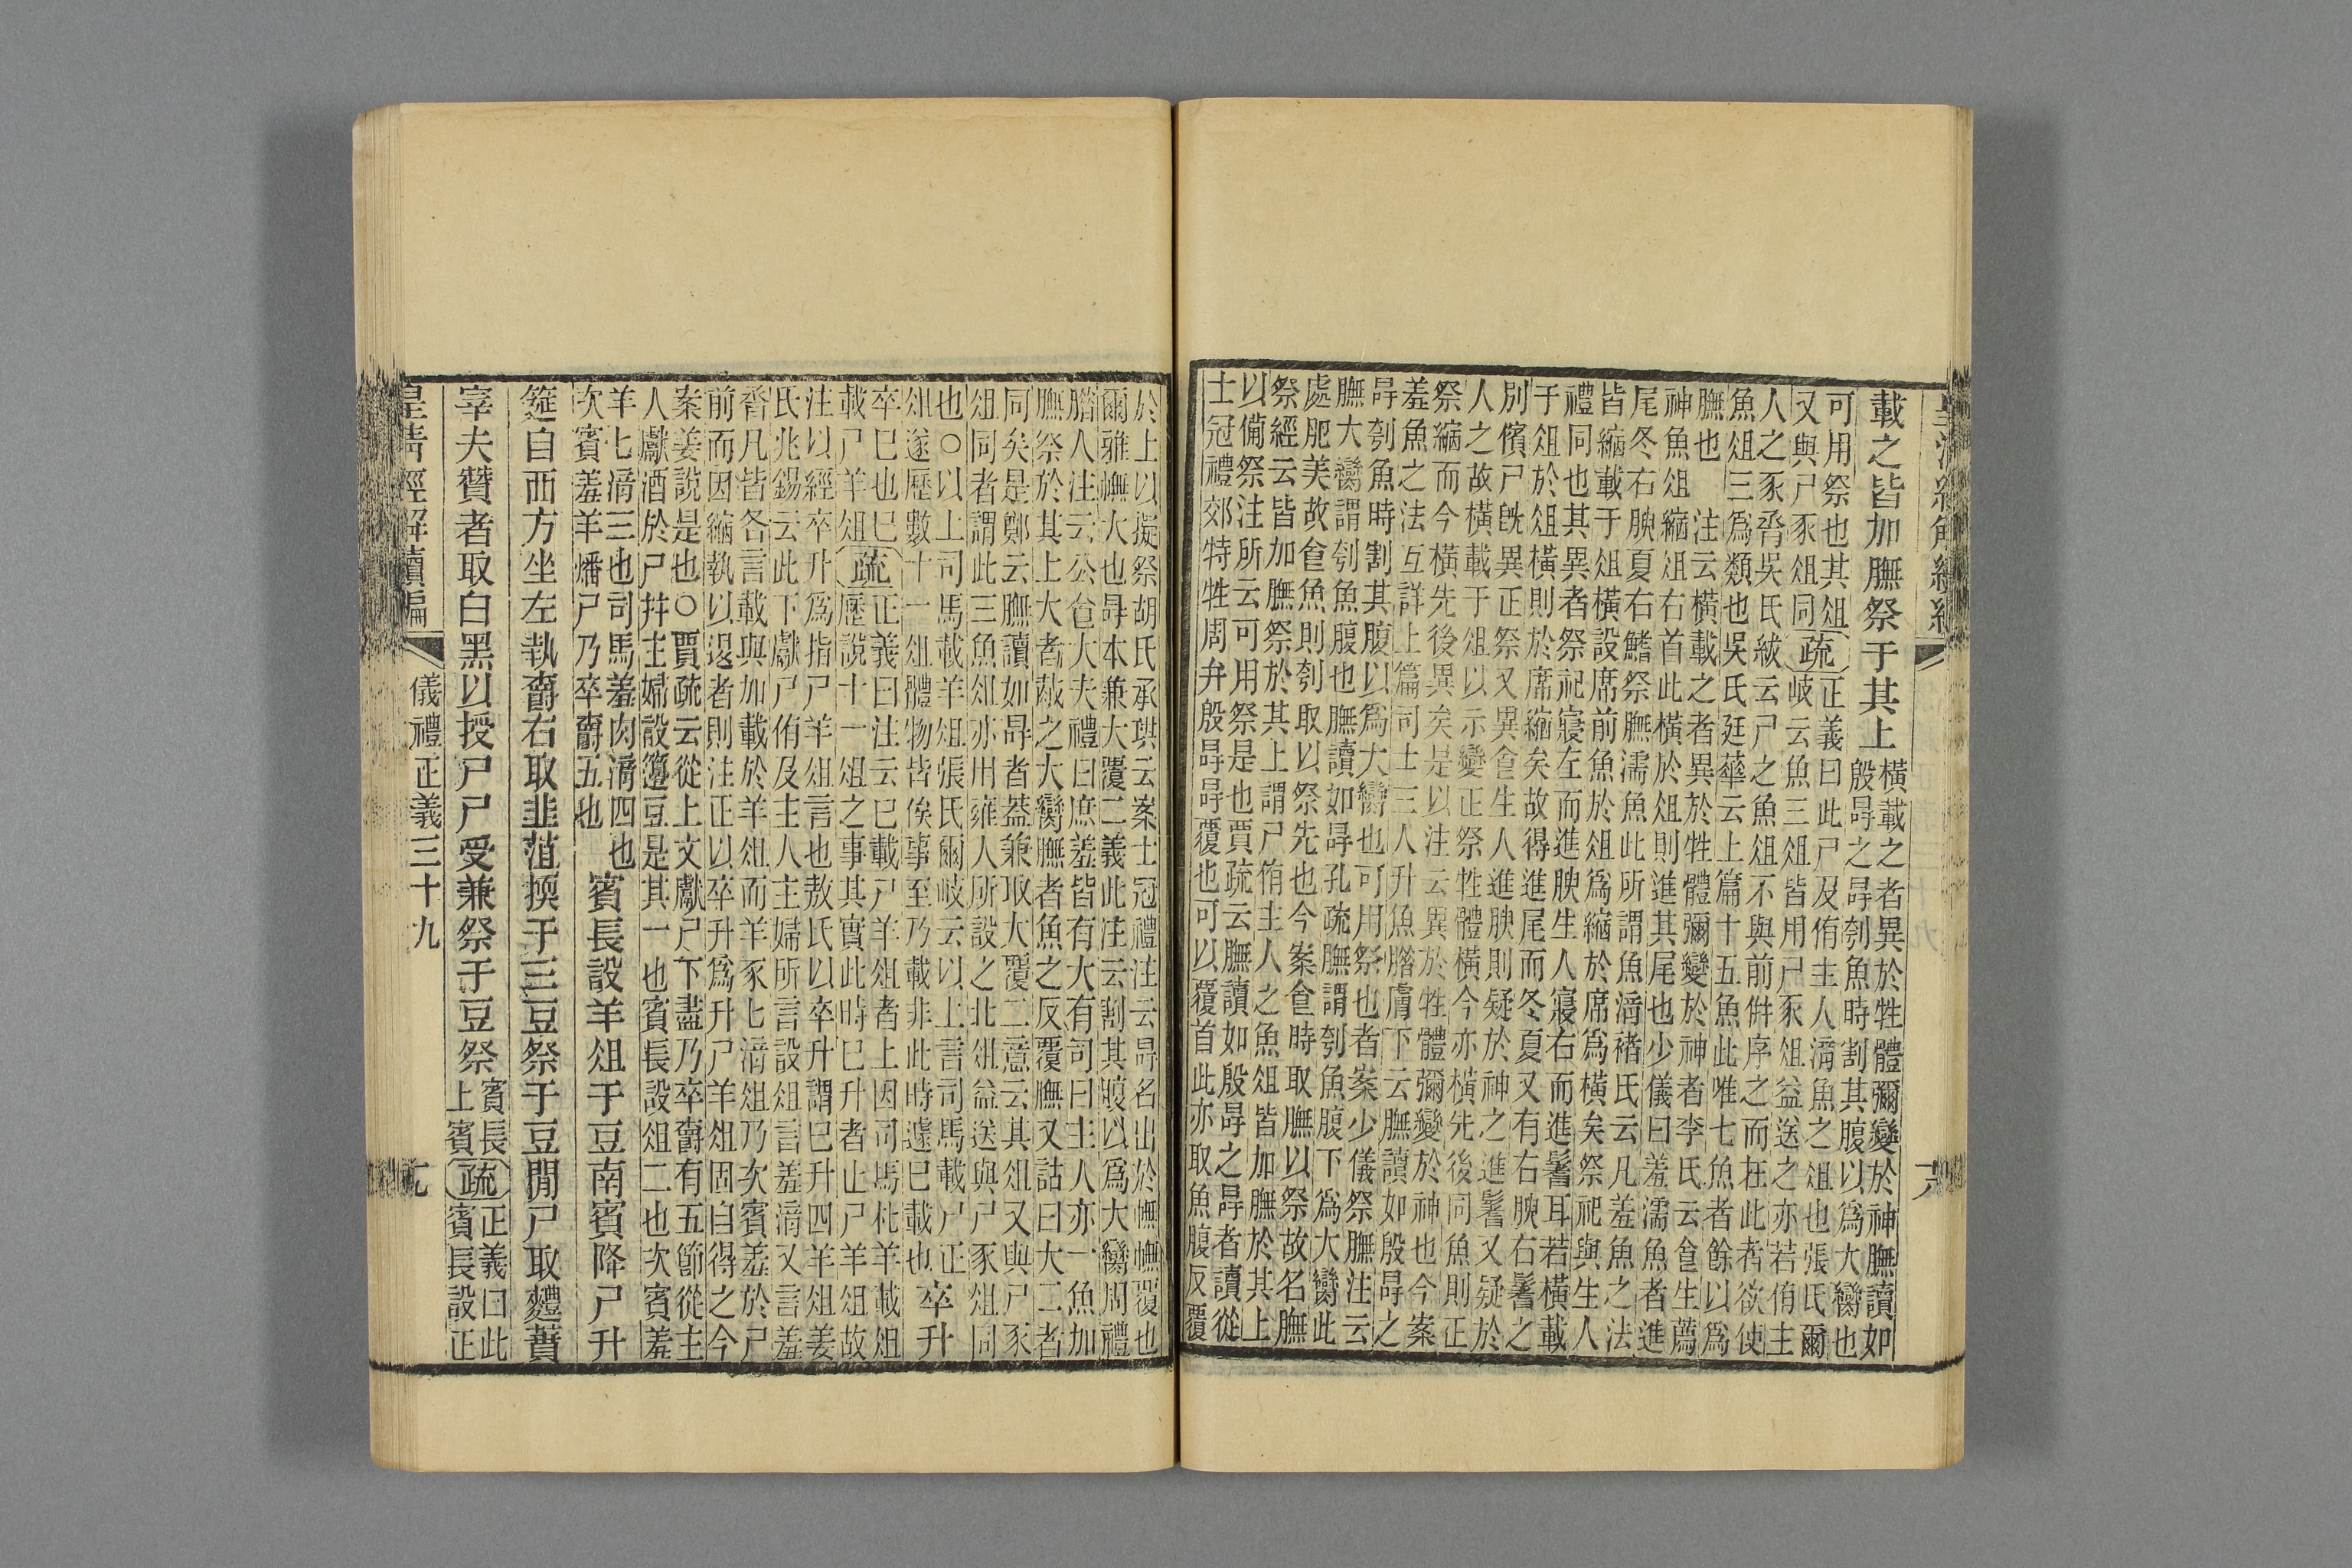 載之皆加膴祭于其上
橫載之者異於牲體彌變於神膴讀如
殷冔之冔刳魚時割其腹以為大臠也
可用祭也其俎
又與尸豕俎同
疏
正義曰此尸及侑主人湆魚之俎也張氏爾
岐云魚三俎皆用尸豕俎益送之亦若侑主
人之豕脀吳氏紱云尸之魚俎不與前併序之而在此者欲使
魚俎三為類也吳氏廷華云上篇十五魚此唯七魚者餘以為
膴也　注云橫載之者異於牲體彌變於神者李氏云食生薦
神魚俎縮俎右首此橫於俎則進其尾也少儀曰羞濡魚者進
尾冬右腴夏右鰭祭膴濡魚此所謂魚湆褚氏云凡羞魚之法
皆縮載于俎橫設席前魚於俎為縮於席為橫矣祭祀與生人
禮同也其異者祭祀寢左而進腴生人寢右而進鬐耳若橫載
于俎於俎橫則於席縮矣故得進尾而冬夏又有右腴右鬐之
別儐尸旣異正祭又異食生人進腴則疑於神之進鬐又疑於
人之故橫載于俎以示變正祭牲體橫今亦橫先後同魚則正
祭縮而今橫先後異矣是以注云異於牲體彌變於神也今案
羞魚之法互詳上篇司士三人升魚腊膚下云膴讀如殷冔之
冔刳魚時割其腹以為大臠也可用祭也者案少儀祭膴注云
膴大臠謂刳魚腹也膴讀如冔孔疏膴謂刳魚腹下為大臠此
處肥美故食魚則刳取以祭先也今案食時取膴以祭故名膴
祭經云皆加膴祭於其上謂尸侑主人之魚俎皆加膴於其上
以備祭注所云可用祭是也賈疏云膴讀如殷冔之冔者讀從
士冠禮郊特牲周弁殷冔冔覆也可以覆首此亦取魚腹反覆
於上以擬祭胡氏承珙云案士冠禮注云冔名出於幠幠覆也
爾雅幠大也冔本兼大覆二義此注云割其腹以為大臠周禮
腊人注云公食大夫禮曰庶羞皆有大有司曰主人亦一魚加
膴祭於其上大者胾之大臠膴者魚之反覆膴又詁曰大二者
同矣是鄭云膴讀如冔者葢兼取大覆二意云其俎又與尸豕
俎同者謂此三魚俎亦用雍人所設之北俎益送與尸豕俎同
也○以上司馬載羊俎張氏爾岐云以上言司馬載尸正
俎遂歷數十一俎體物皆俟事至乃載非此時遽已載也
卒升
卒已也已
載尸羊俎
疏
正義曰注云已載尸羊俎者上因司馬朼羊載俎
歷說十一俎之事其實此時已升者止尸羊俎故
注以經卒升為指尸羊俎言也敖氏以卒升謂已升四羊俎姜
氏兆錫云此下獻尸侑及主人主婦所言設俎言羞湆又言羞
脀凡皆各言載與加載於羊俎而羊豕匕湆俎乃次賓羞於尸
前而因縮執以退者則注正以卒升為升尸羊俎固自得之今
案姜說是也○賈疏云從上文獻尸下盡乃卒爵有五節從主
人獻酒於尸并主婦設籩豆是其一也賓長設俎二也次賓羞
羊匕湆三也司馬羞肉湆四也
次賓羞羊燔尸乃卒爵五也
賓長設羊俎于豆南賓降尸升
筵自西方坐左執爵右取韭菹㨎于三豆祭于豆閒尸取麷蕡
宰夫贊者取白黑以授尸尸受兼祭于豆祭
賓長
上賓
疏
正義曰此
賓長設正
皇清經解續編　儀禮正義三十九